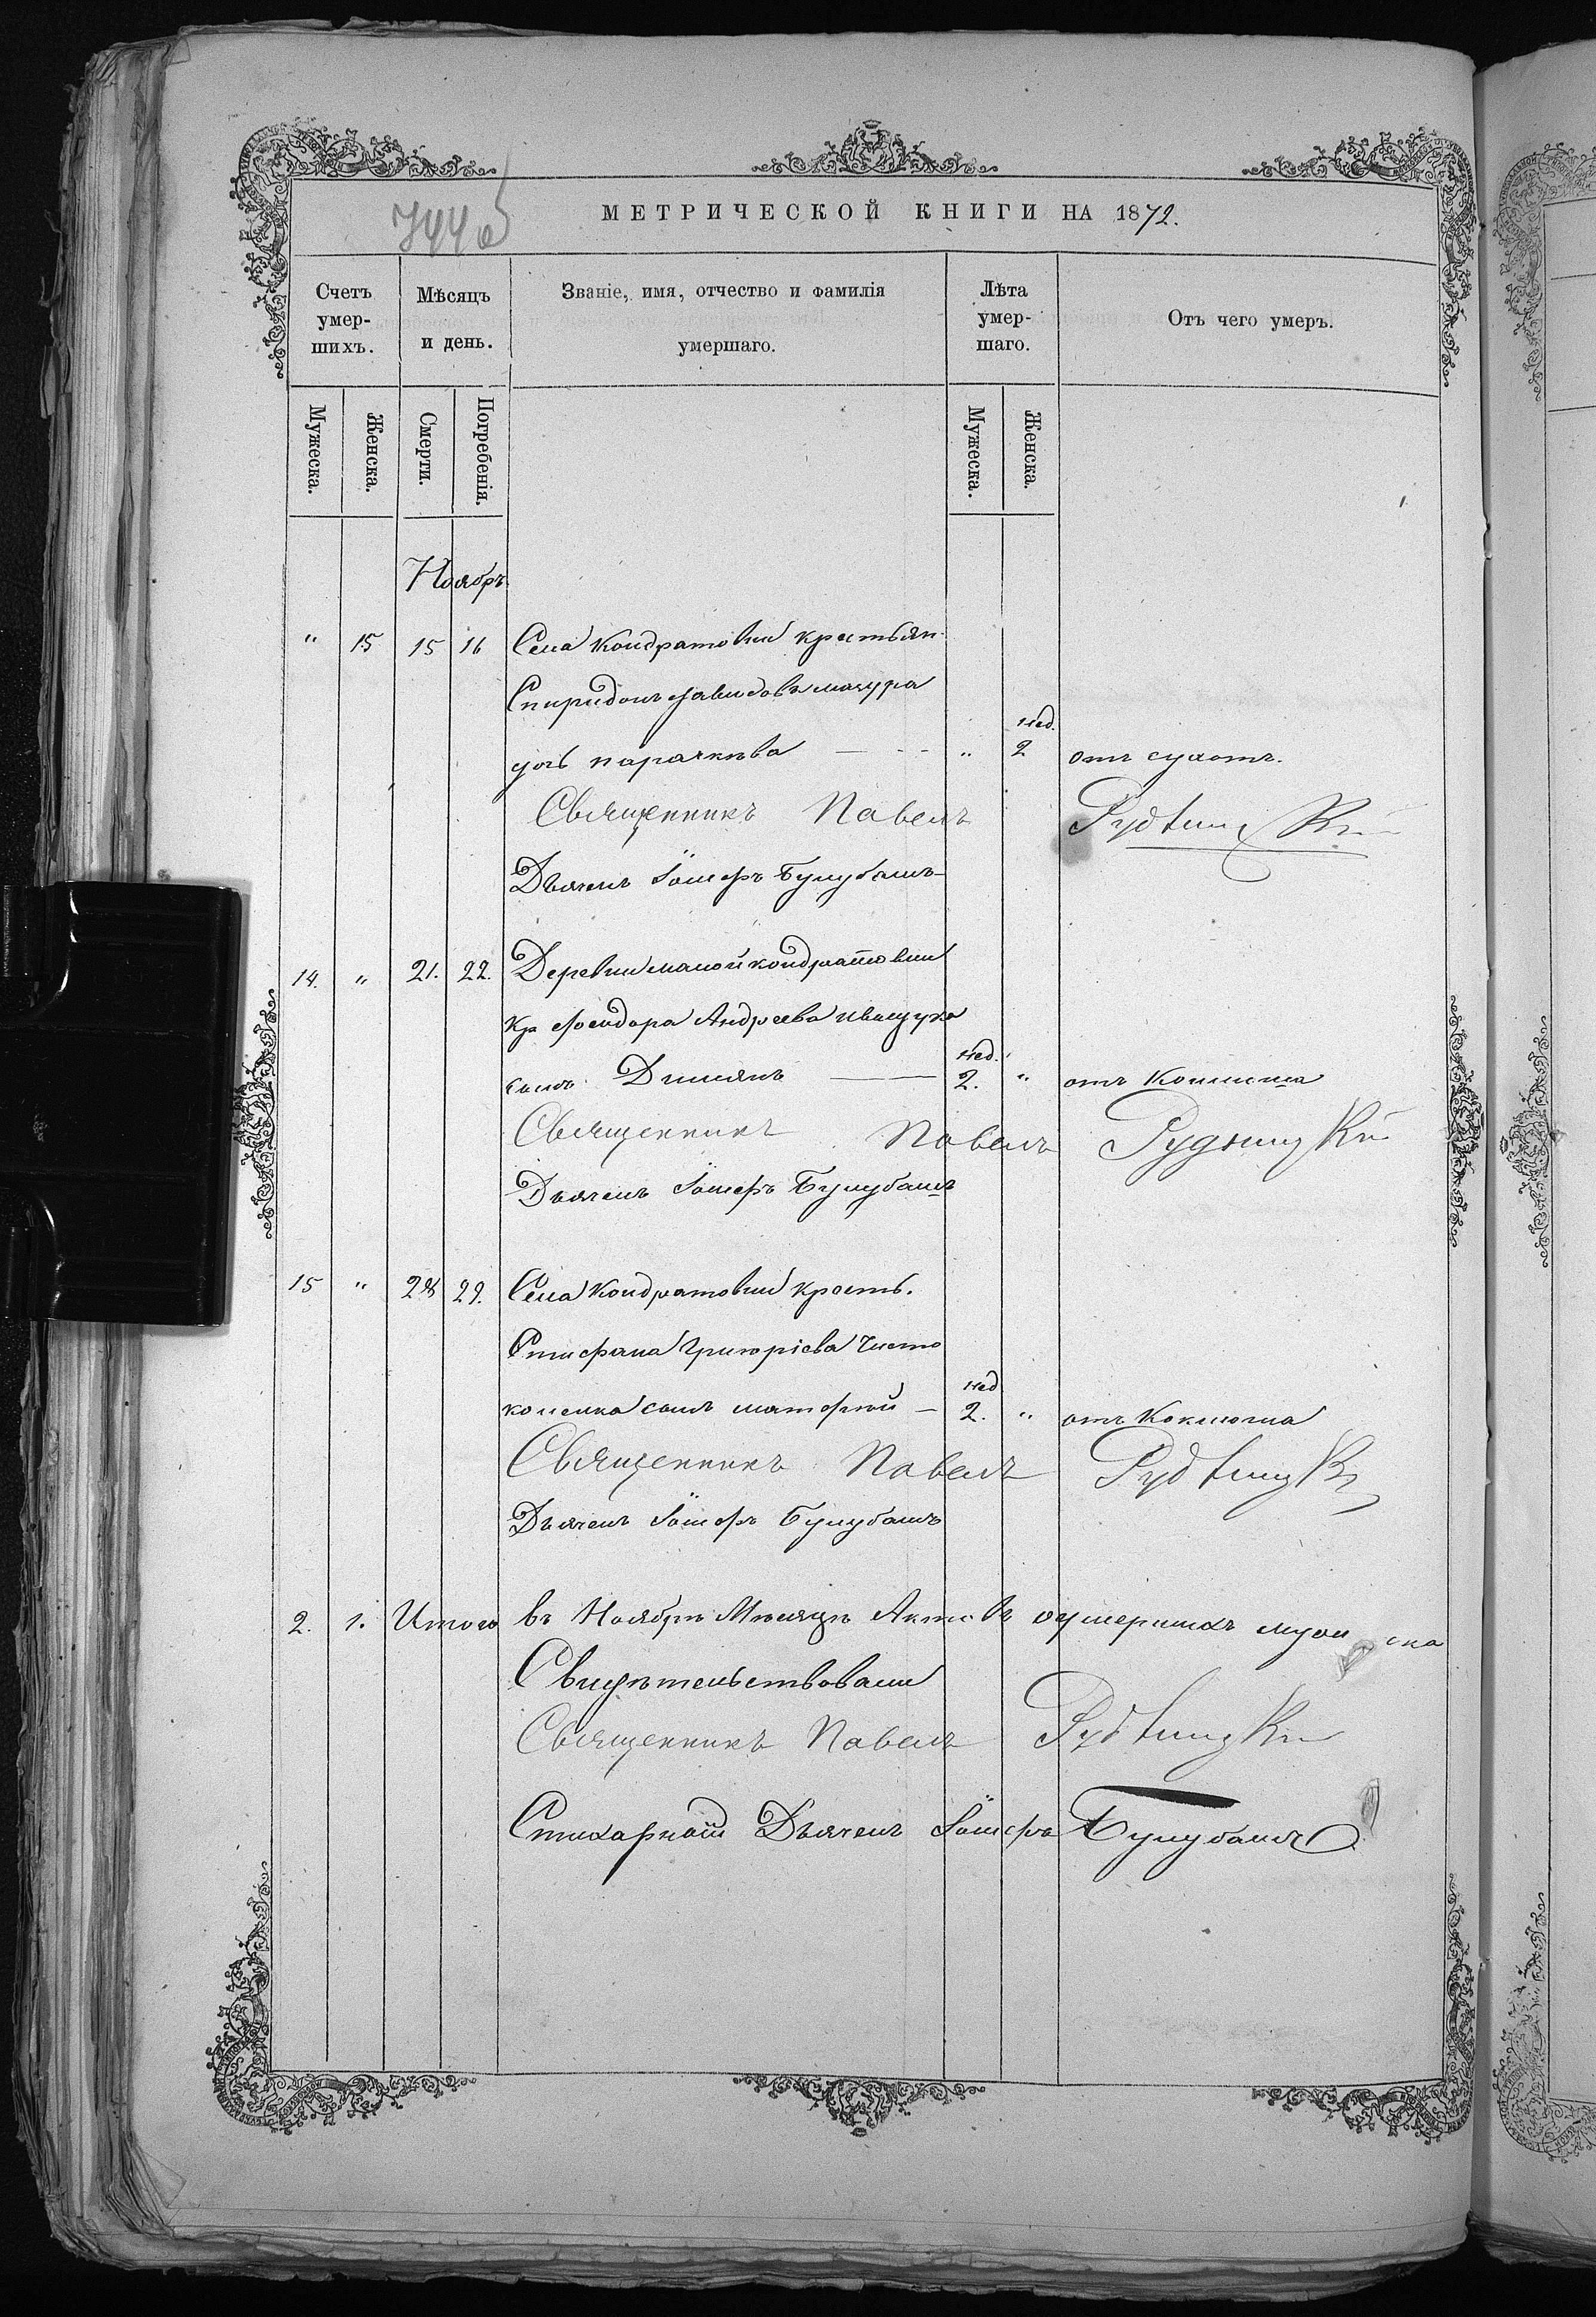 МЕТРИЧЕСКОЙ КНИГИ НА 1872.
Счетъ умер-шихъ. Мѣсяцъ и день. Званіе, имя, отчество и фамилія умершаго. Лѣта умер-шаго. Отъ чего умеръ.
Мужеска. Женска. Смерти. Погребенія. Мужеска. Женска.
Ноябрь
" 15 15 16 Села Кондратовки крестьян.
Спиридон
нед.
" 2 отъ сухотъ.
Священникъ Павелъ Рудницкій
Дьячекъ Іосифъ Булубашъ
14. " 21. 22. Деревни малой кондратовки
Кр Феодора Андреева
нед.
сынъ Димиянъ 2. " отъ Коклюша
Священникъ Павелъ Рудницкій
Дьячекъ Іосифъ Булубашъ
15 " 28 29. Села Кондратовки крест.
Стефана Григоріева Чисто
нед
сынъ матфей – 2. " отъ Коклюша
Священникъ Павелъ Рудницкій
Дьячекъ Іосифъ Булубашъ
2. 1. Итого въ Ноябрѣ Мѣсяцѣ умершихъ
Свидѣтельствовали
Священникъ Павелъ Рудницкій
Стихарный Дьячекъ Іосифъ Булубашъ